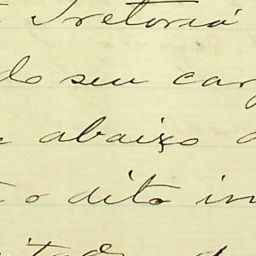 Pretoria
do seu car
abaixo a
o dito in